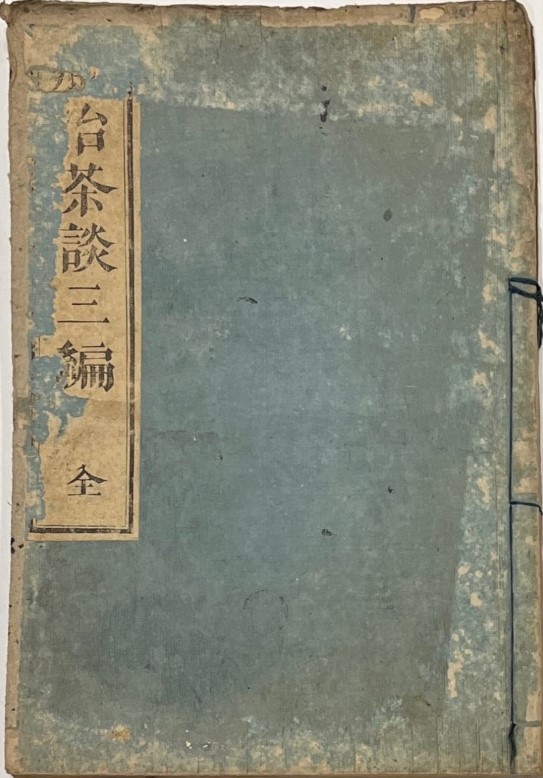 台茶談三編 全